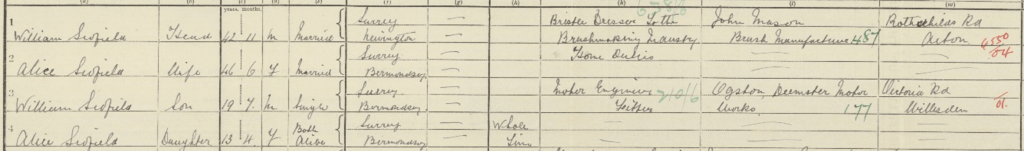 years. months.
1 Surrey Bristle Dresser to the John Mason Rothschilds Rd
William Scofield Head 42 11 M Married Newington Brushmaking Industry Brush Manufacturer 487 Acton
2 Surrey Home Duties
Alice Scofield Wife 46 6 F Married Bermondsey
3 Surrey Motor Engineer 210/6 Ogston, Deemster Motor Victoria Rd
William Scofield Son 19 7 M Single Bermondsey Fitter Works 177 Willesden
4 Both Surrey Whole
Alice Scofield Daughter 13 4 F Alive Bermondsey Time